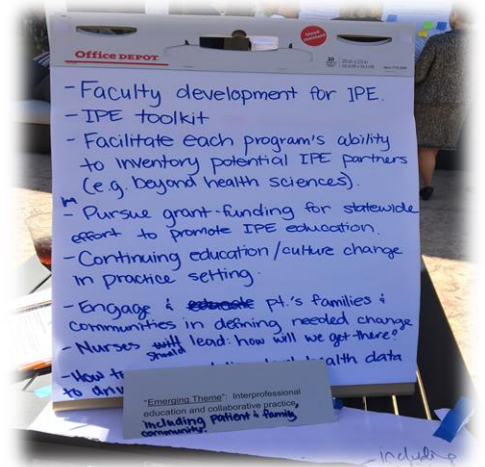 Office DEPOT
- Faculty development for IPE.
- IPE toolkit
- Facilitate each program's ability
to inventory potential IPE partners
(e.g. beyond health sciences).
- Pursue grant-funding for statewide
effort to promote IPE education.
- Continuing education/culture change
in practice setting.
- Engage & educate pt.'s families &
communities in defining needed change
- Nurses will should lead: how will we get there?
- How health data
to
"Emerging Theme": Interprofessional
education and collaborative practice,
including patient & family,
community.
including